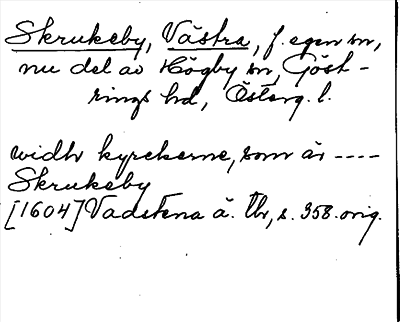 Skrukeby, Västra, f. egen sn,
nu del av Högby sn, Göst-
rings hd, Österg. l.
widh kyrckerne, som är ----
Skrukeby
[1604] Vadstena ä. tb, s. 358. orig.